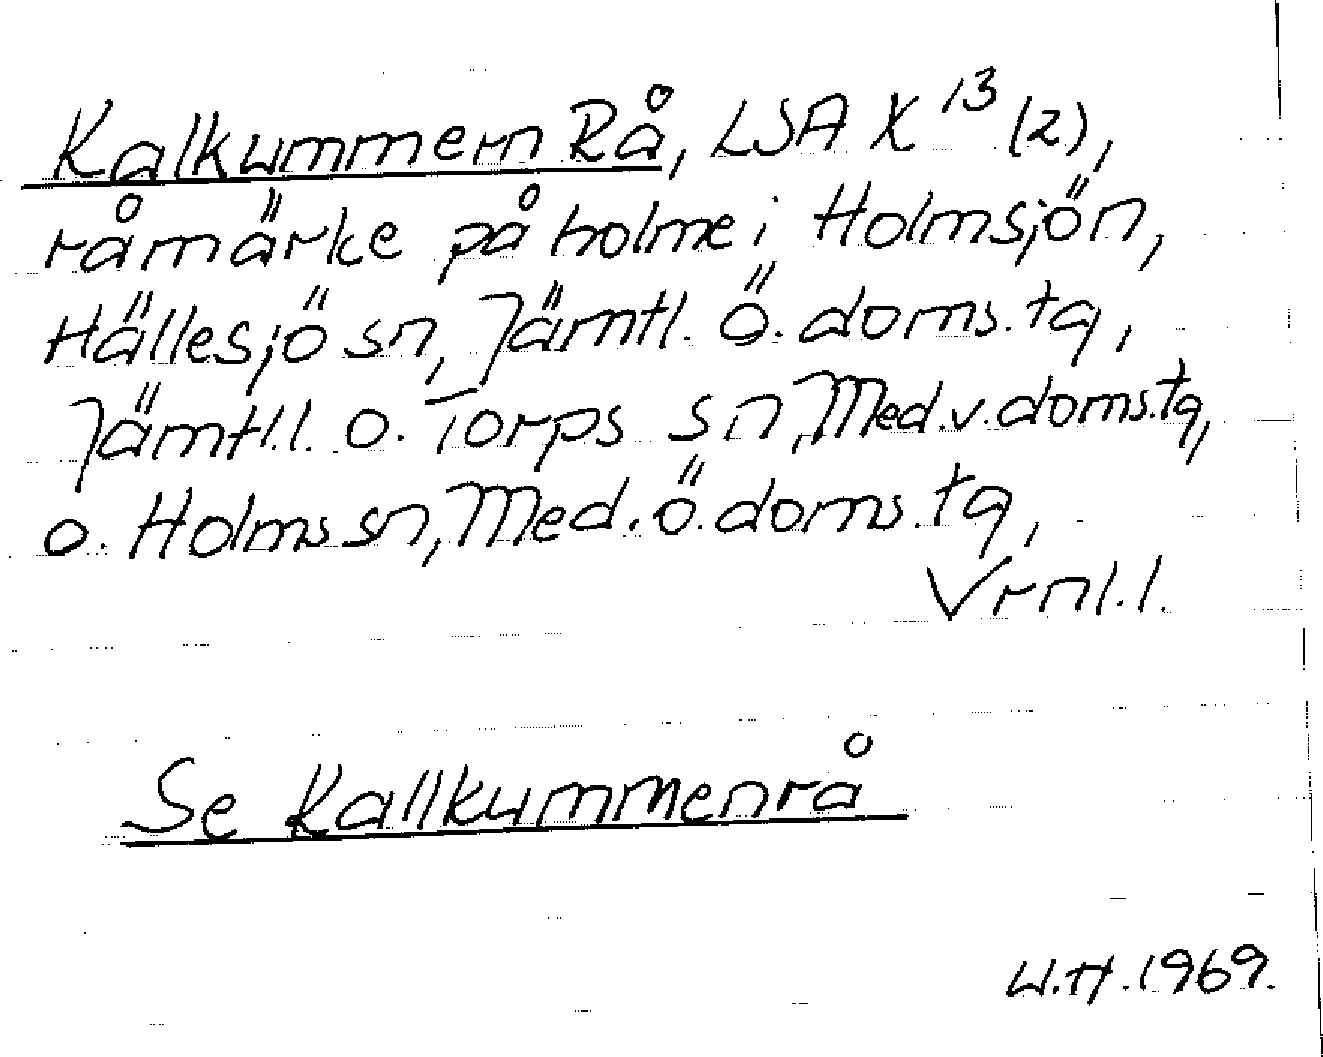 Kalkummern Rå, LSA X 13 (2),
råmärke på holme i Holmsjön,
Hällesjö sn, Jämtl. Ö. doms.tg,
Jämtl.l. o. Torps sn, Med.v.doms.tg,
o. Holms sn, Med. ö. doms.tg,
Vrnl.l.
Se Kallkummenrå
U.H. 1969.